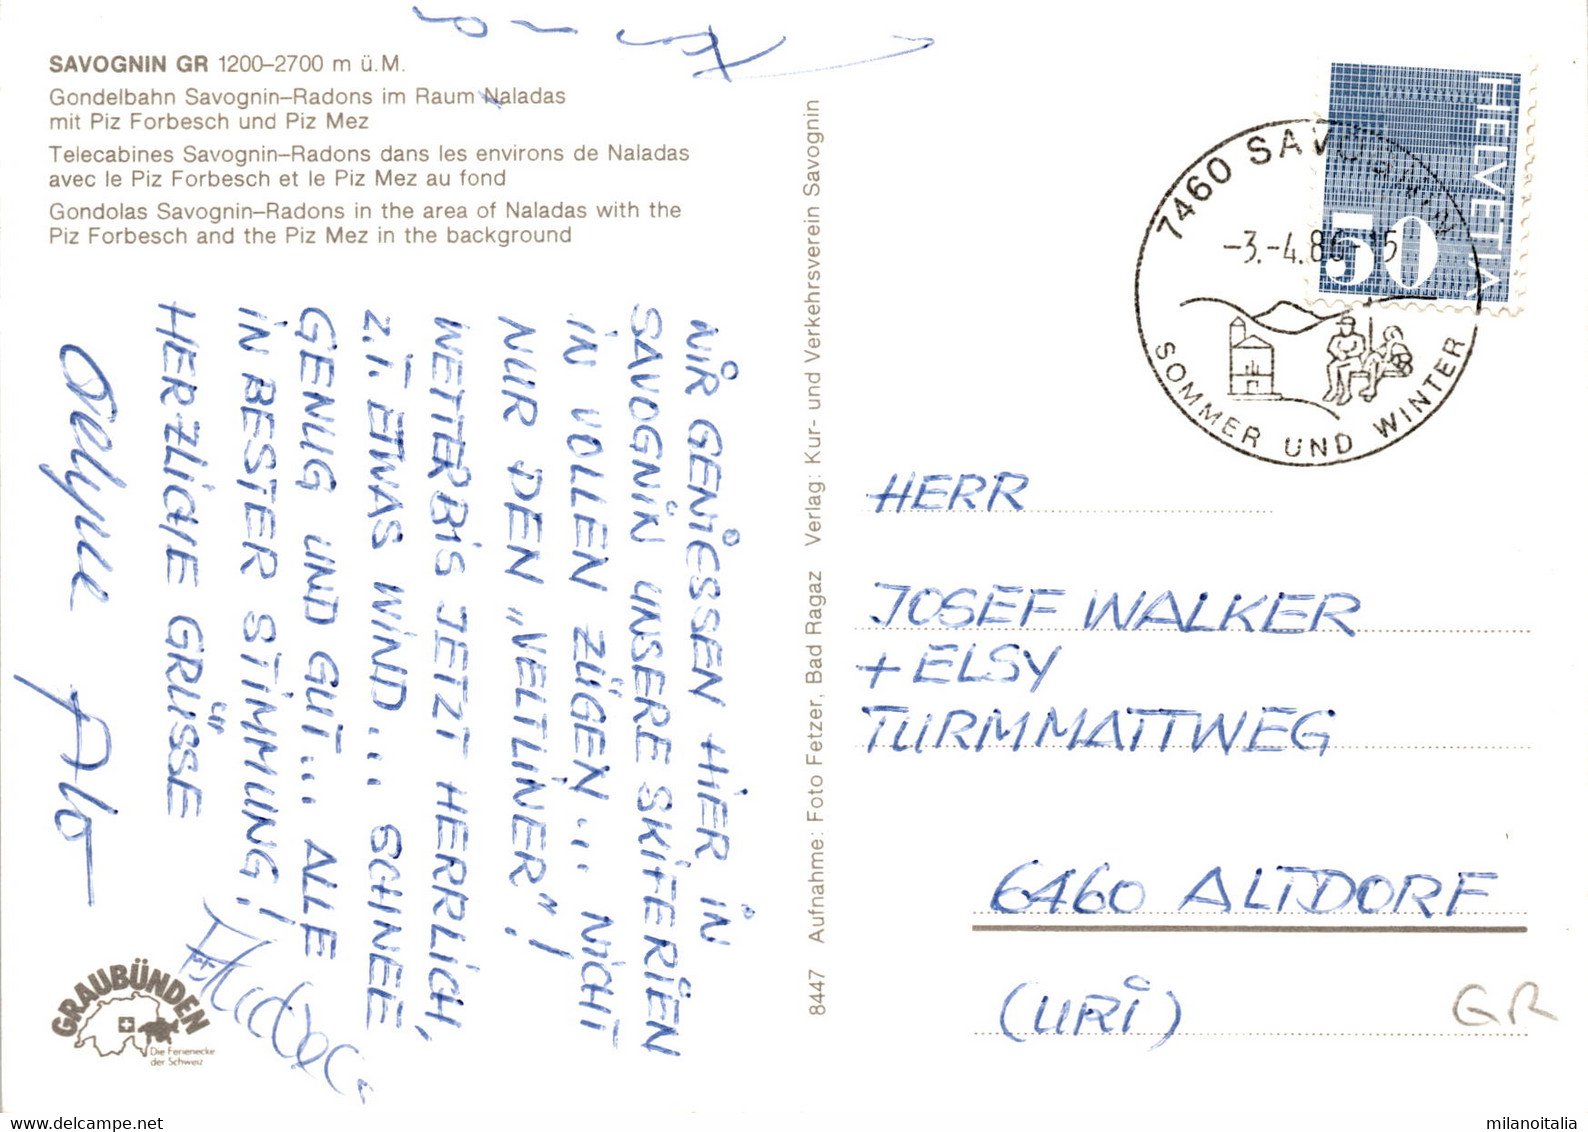 SAVOGNIN GR 1200–2700 m ü.M.
Gondelbahn Savognin–Radons im Raum Naladas
mit Piz Forbesch und Piz Mez
Telecabines Savognin–Radons dans les environs de Naladas
avec le Piz Forbesch et le Piz Mez au fond
Gondolas Savognin–Radons in the area of Naladas with the
Piz Forbesch and the Piz Mez in the background
WIR GENIESSEN HIER IN
SAVOGNIN UNSERE SKIFERIEN
IN VOLLEN ZÜGEN... NICHT
NUR DEN „VELTLINER"!
WETTER BIS JETZT HERRLICH,
Z.T. ETWAS WIND... SCHNEE
GENUG UND GUT... ALLE
IN BESTER STIMMUNG!
HERZLICHE GRÜSSE
GRAUBÜNDEN
Die Ferienecke
der Schweiz
8447 Aufnahme: Foto Fetzer, Bad Ragaz Verlag: Kur- und Verkehrsverein Savognin
HELVETIA
50
7460 SAVOGNIN
-3.-4.86-15
SOMMER UND WINTER
HERR
JOSEF WALKER
+ ELSY
TURMMATTWEG
6460 ALTDORF
(URI)
GR
milanoitalia
delcampe.net